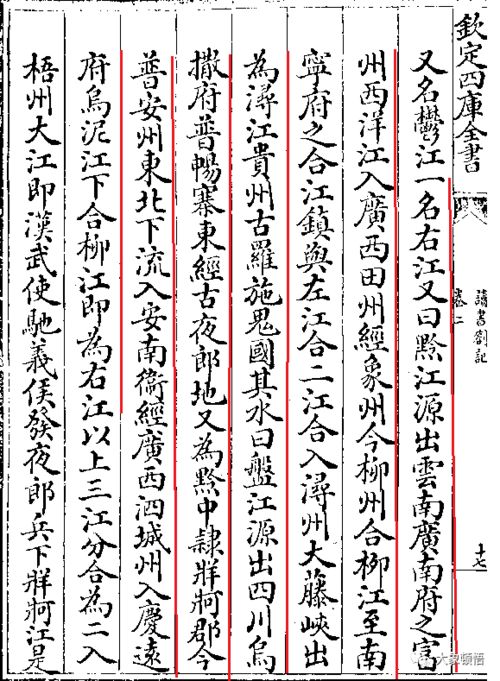 欽定四庫全書
讀書劄記
卷二
十七
又名鬱江一名右江又曰黔江源出雲南廣南府之富
州西洋江入廣西田州經象州今柳州合柳江至南
寧府之合江鎮與左江合二江合入潯州大藤峽出
為潯江貴州古羅施鬼國其水曰盤江源出四川烏
撒府普暢寨東經古夜郎地又為黔中隸牂牁郡今
普安州東北下流入安南衞經廣西泗城州入慶遠
府烏泥江下合柳江即為右江以上三江分合為二入
梧州大江即漢武使馳義侯發夜郎兵下牂牁江是
大象頓悟